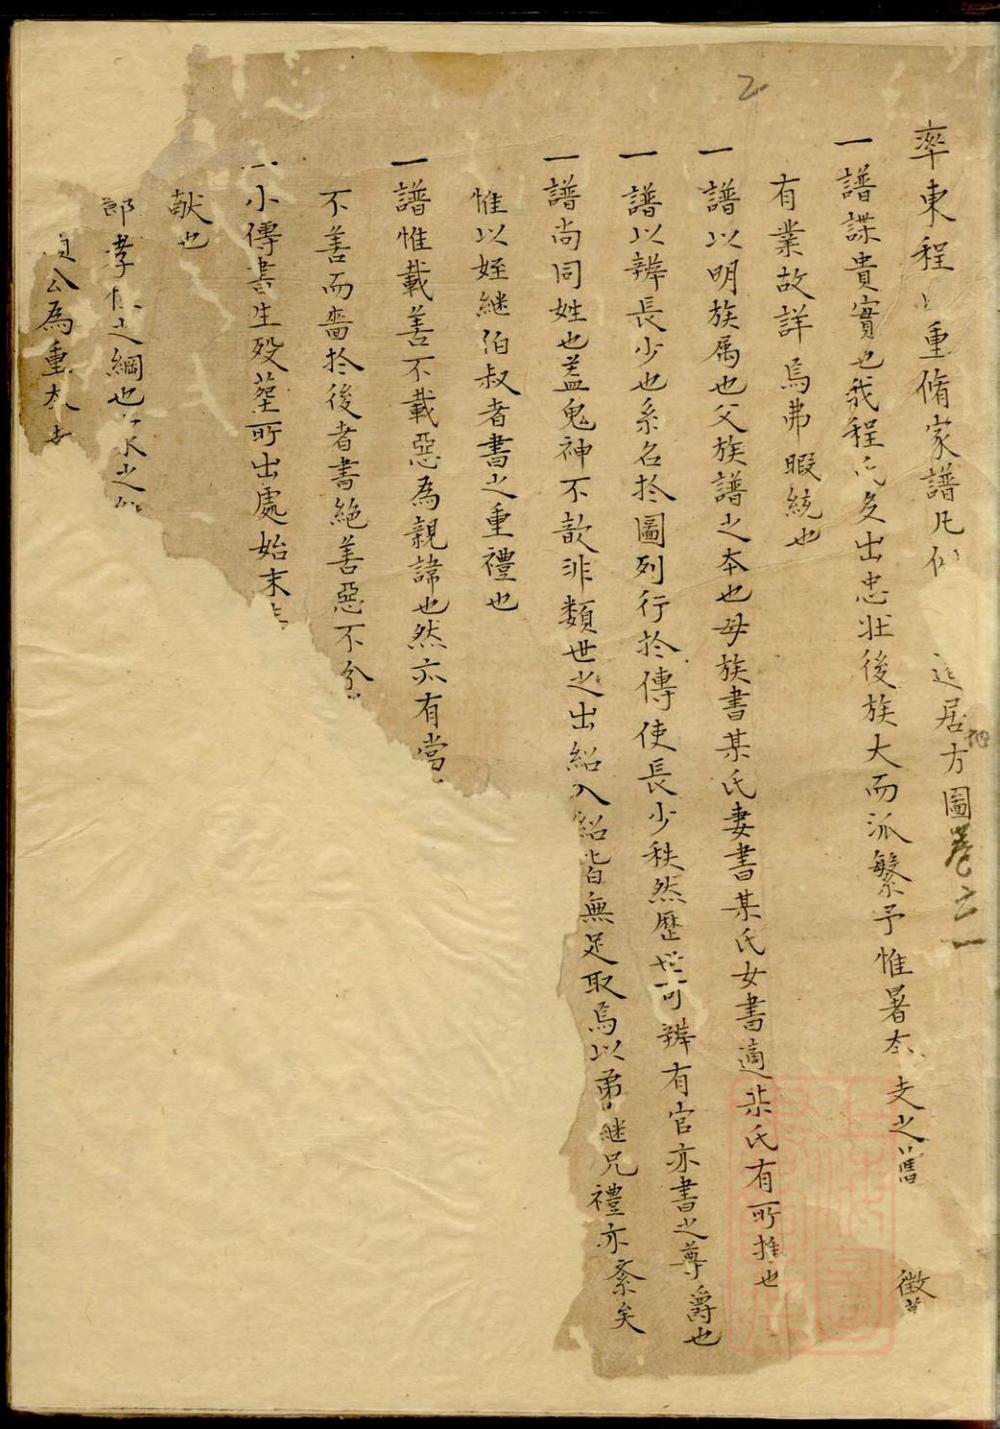 2
率東程 重脩家譜凡 遷居方圖卷之一
一譜諜貴實也我程氏多出忠壯後族大而派繁予惟畧本 支之舊 徵
有業故詳焉弗暇統也
一譜以明族属也父族譜之本也母族書某氏妻書某氏女書適某氏有所推也
一譜以辨長少也系名扵圖列行扵傳使長少秩然歷世可辨有官亦書之尊爵也
一譜尚同姓也盖鬼神不歆非類世之出紹入紹皆無足取焉以弟継兄禮亦紊矣
惟以姪継伯叔者書之重禮也
一譜惟載善不載惡為親諱也然亦有當
不善而嗇扵後者書絶善惡不分
一小傳書生殁塟所出處始末
献也
郎孝 之綱也 之
公為重本